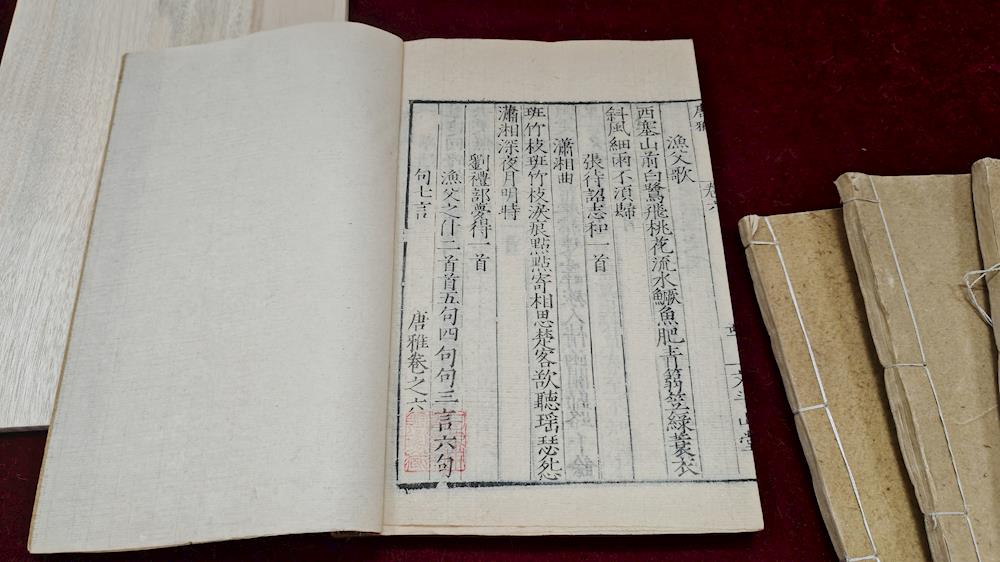 唐雅 卷六
漁父歌
西塞山前白鷺飛桃花流水鱖魚肥青篛笠綠蓑衣
斜風細雨不湏歸
張待詔志和一首
瀟湘曲
班竹枝班竹枝淚痕點點寄相思楚客欲聽瑶瑟怨
瀟湘深夜月明時
劉禮部夢得一首
漁父之什二首首五句四句句三言六句
句七言
唐雅卷之六